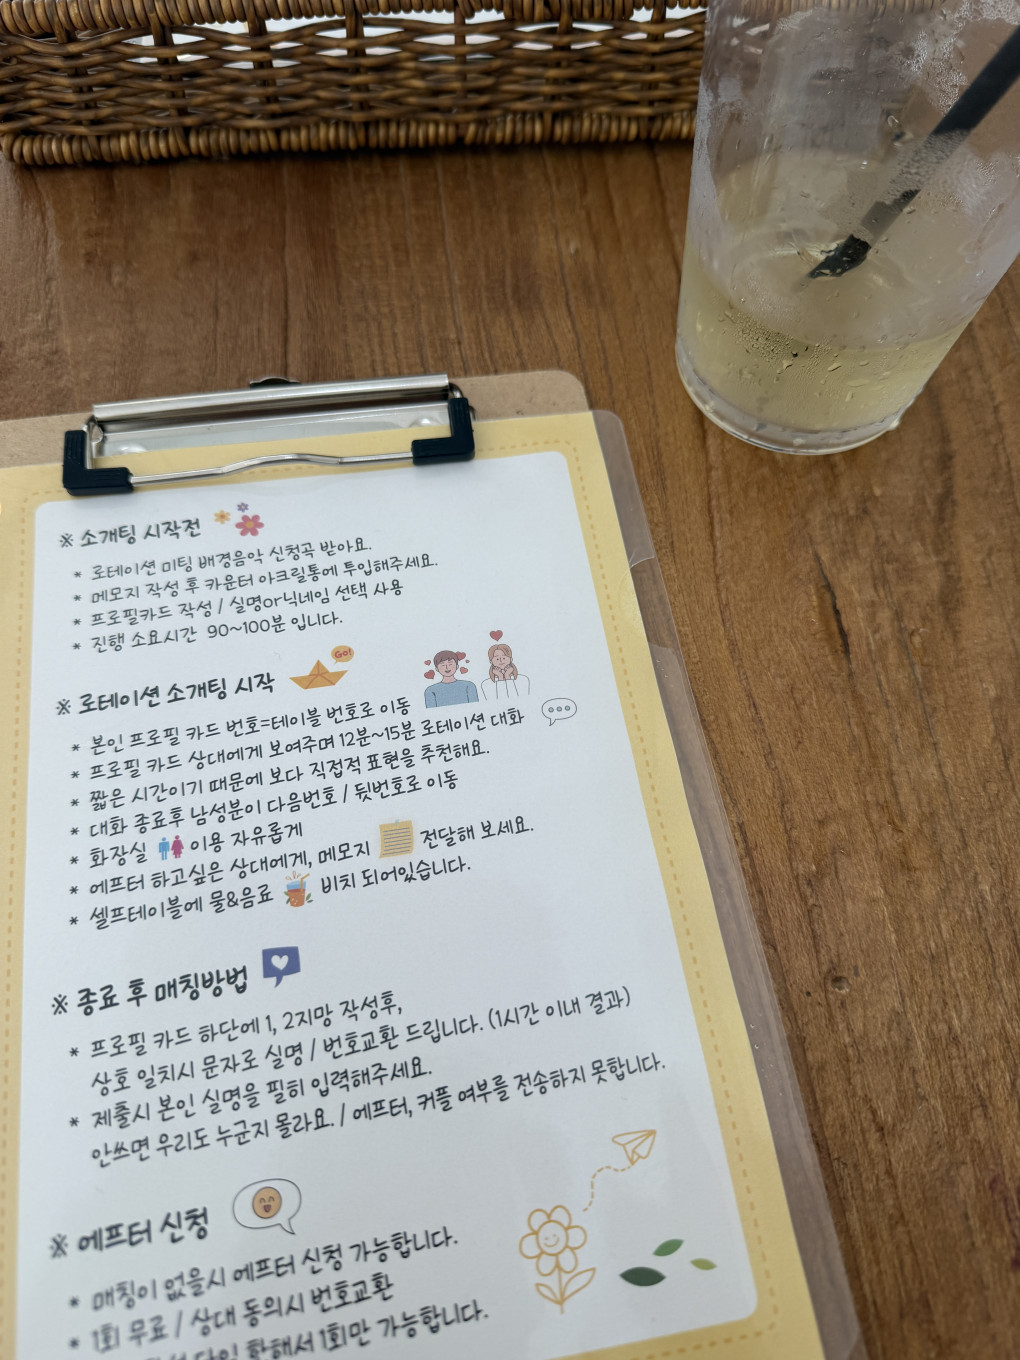 ※ 소개팅 시작전
* 로테이션 미팅 배경음악 신청곡 받아요.
* 메모지 작성 후 카운터 아크릴통에 투입해주세요.
* 프로필카드 작성 / 실명or닉네임 선택 사용
* 진행 소요시간 90~100분 입니다.
※ 로테이션 소개팅 시작
Go!
* 본인 프로필 카드 번호=테이블 번호로 이동
* 프로필 카드 상대에게 보여주며 12분~15분 로테이션 대화
* 짧은 시간이기 때문에 보다 직접적 표현을 추천해요.
* 대화 종료후 남성분이 다음번호 / 뒷번호로 이동
* 화장실 이용 자유롭게
* 에프터 하고싶은 상대에게, 메모지 전달해 보세요.
* 셀프테이블에 물&음료 비치 되어있습니다.
※ 종료 후 매칭방법
* 프로필 카드 하단에 1, 2지망 작성후,
상호 일치시 문자로 실명 / 번호교환 드립니다. (1시간 이내 결과)
* 제출시 본인 실명을 필히 입력해주세요.
안쓰면 우리도 누군지 몰라요. / 에프터, 커플 여부를 전송하지 못합니다.
※ 에프터 신청
* 매칭이 없을시 에프터 신청 가능합니다.
* 1회 무료 / 상대 동의시 번호교환
당일 한해서 1회만 가능합니다.